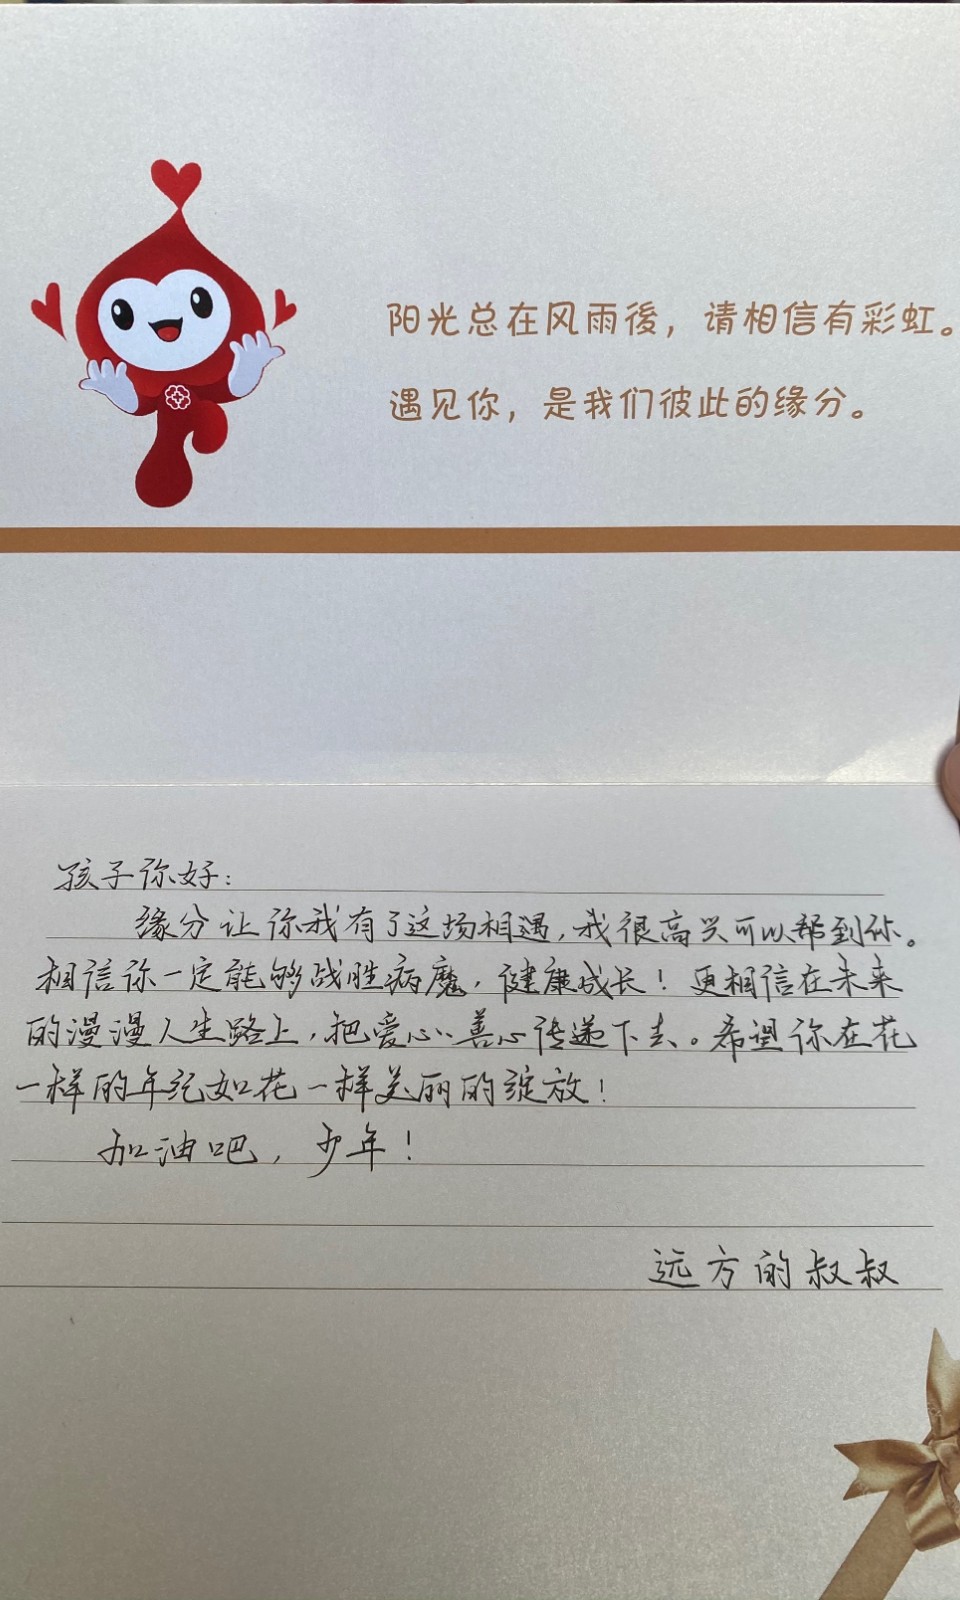 阳光总在风雨後，请相信有彩虹。
遇见你，是我们彼此的缘分。
孩子你好：
缘分让你我有了这场相遇，我很高兴可以帮到你。
相信你一定能够战胜病魔，健康成长！更相信在未来
的漫漫人生路上，把爱心、善心传递下去。希望你在花
一样的年纪如花一样美丽的绽放！
加油吧，少年！
远方的叔叔